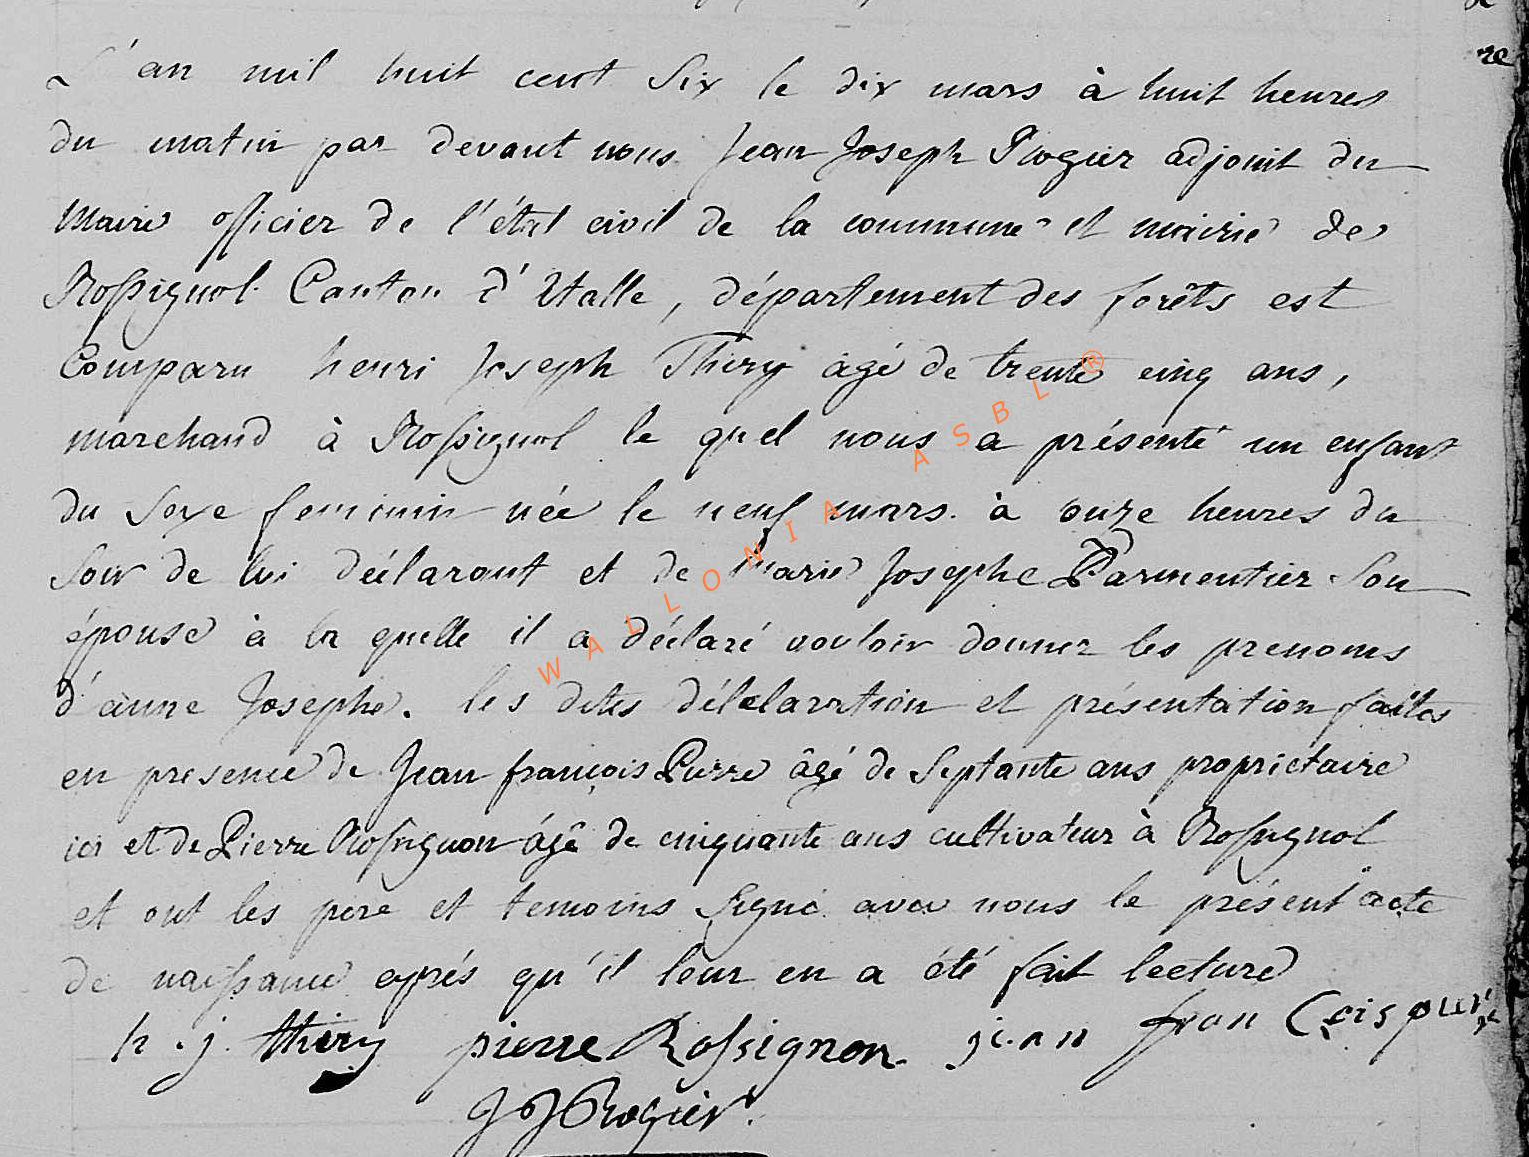 L'an mil huit cent Six le dix mars à huit heures
du matin par devant nous Jean Joseph Rogier adjoint du
Maire officier de l'état civil de la commune et mairie de
Rossignol Canton d'Etalle, département des forêts est
Comparu henri Joseph Thiry âgé de trente cinq ans,
marchand à Rossignol le quel nous a présenté un enfant
du Sexe feminin née le neuf mars à onze heures du
Soir de lui déclarant et de Marie Josephe Parmentier Son
épouse à la quelle il a déclaré vouloir donner les prenoms
d'anne Josephe. les dites délclaration et présentation faites
en presence de Jean françois Pierre âgé de Septante ans proprietaire
ici et de Pierre Rossignon âgé de cinquante ans cultivateur à Rossignol
et ont les pere et temoins Signé avec nous le présent acte
de naissance après qu'il leur en a été fait lecture
h. j. thiry pierre Rossignon jean fran Cois pierre
J J Rogier
WALLONIA ASBL ®